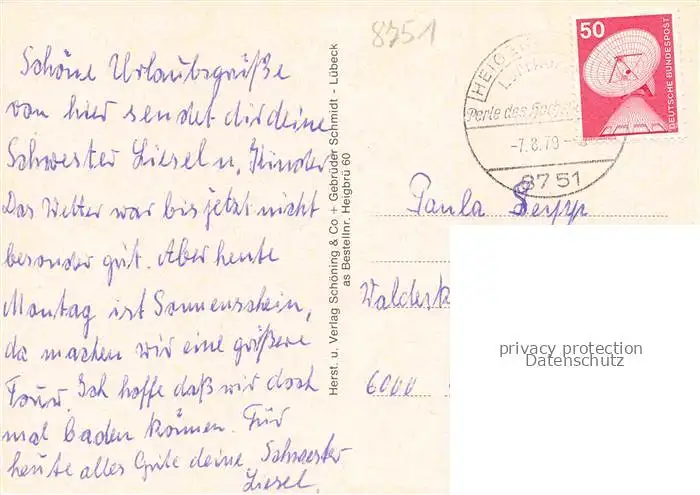 Schöne Urlaubsgrüße
von hier sendet dir deine
Schwester Liesel u. Kinder
Das Wetter war bis jetzt nicht
besonder gut. Aber heute
Montag ist Sonnenschein,
da machen wir eine größere
Tour. Ich hoffe daß wir doch
mal baden können. Für
heute alles Gute deine Schwester
Liesel.
Herst. u. Verlag Schöning & Co + Gebrüder Schmidt - Lübeck
as Bestellnr. Heigbrü 60
8751
50
DEUTSCHE BUNDESPOST
Perle des
-7.8.79
8751
Paula Seypp
6000
privacy protection
Datenschutz